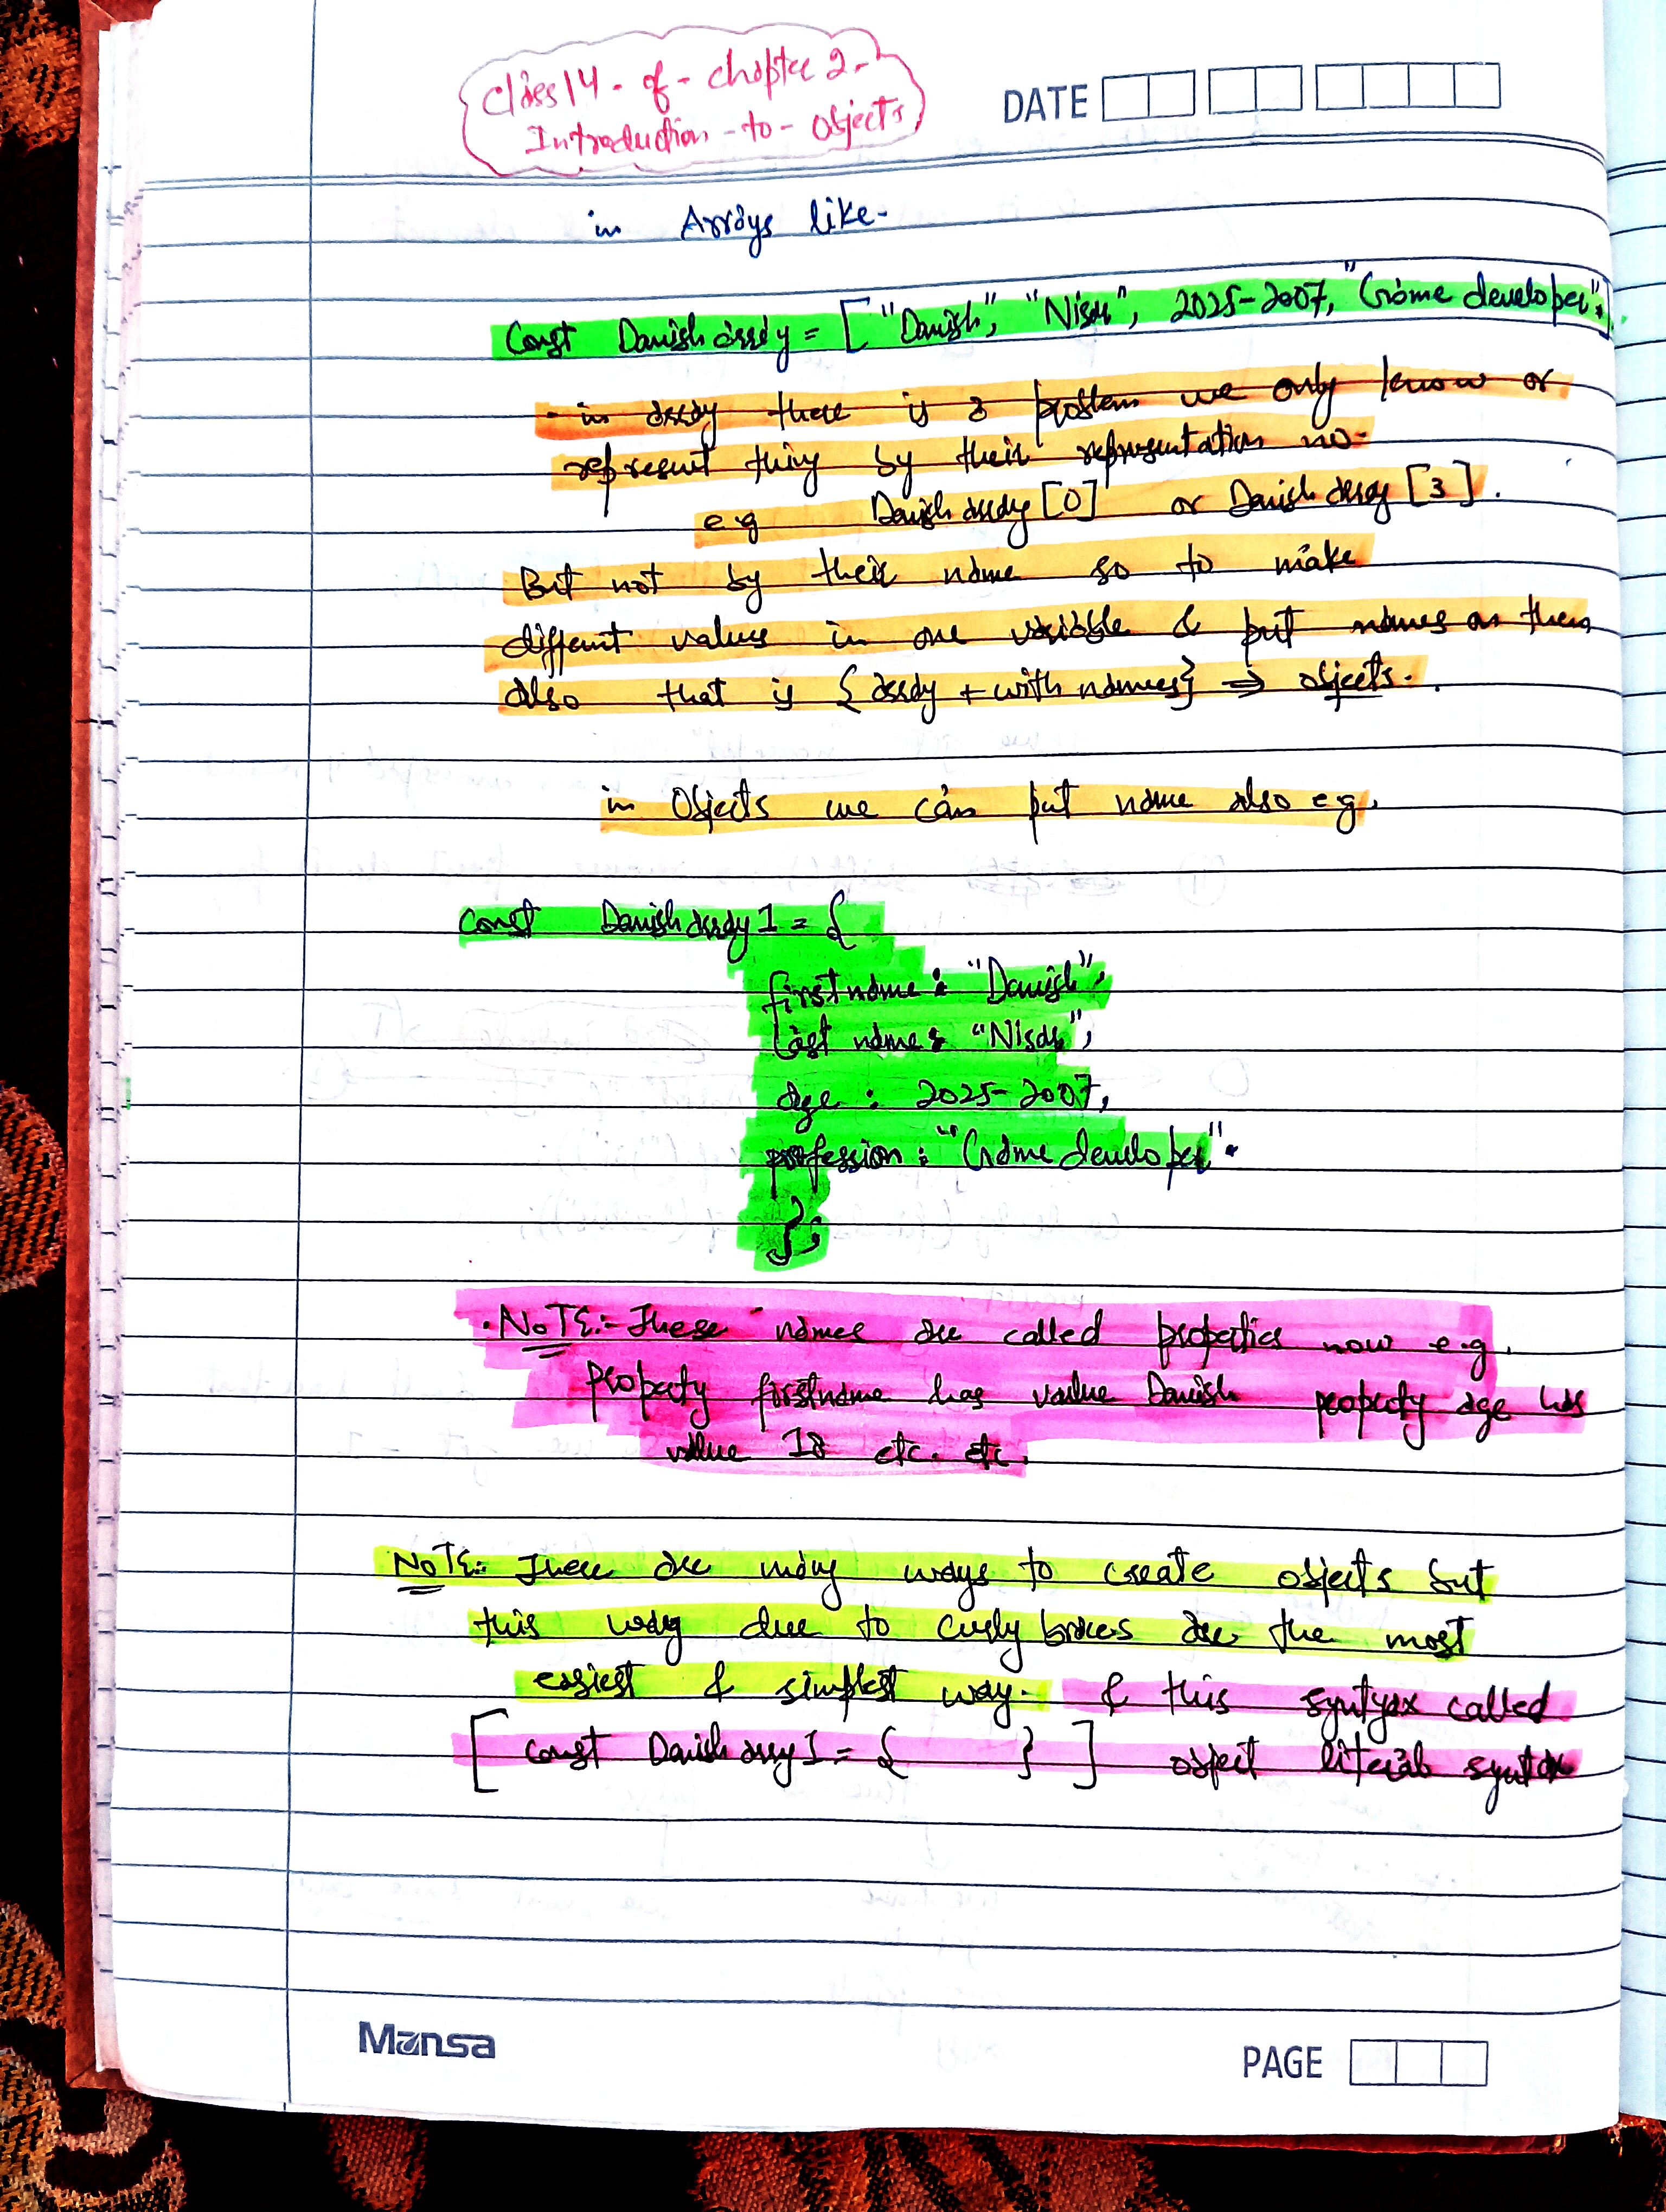 Class 14 - of - chapter 2 -
Introduction - to - objects
DATE
in Arrays like -
Const Danish array = ["Danish", "Nisar", 2025-2007, "Game developer".]
- in array there is a problem we only know or
represent thing by their representation no -
e.g Danish array [0] or Danish array [3].
But not by their name so to make
different values in one variable & put names on them
also that is {array + with names} ⇒ objects.
in Objects we can put name also e.g.
const Danish array 1 = {
first name : "Danish",
last name : "Nisar",
age : 2025-2007,
profession : "Game developer".
};
. NOTE:- These names are called properties now e.g.
property firstname has value Danish property age has
value 18 etc. etc.
NOTE:- There are many ways to create objects but
this way due to curly braces are the most
easiest & simplest way. & this syntyax called
[ const Danish array 1 = { } ] object literal syntax
Mansa
PAGE